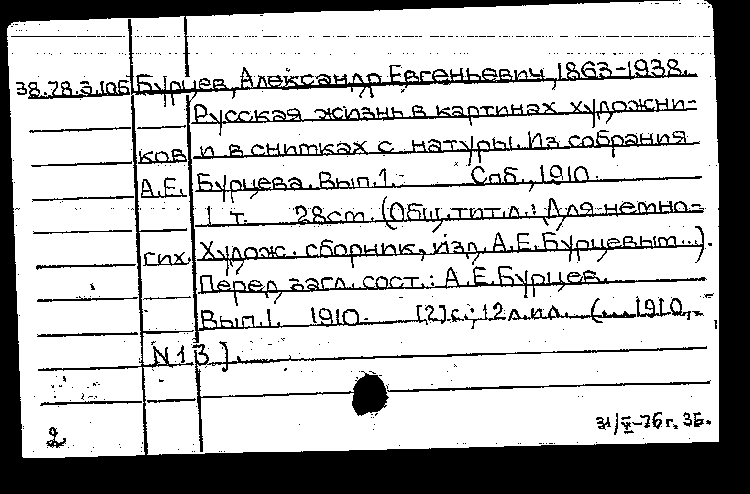 38.78.3.106 Бурцев, Александр Евгеньевич, 1863-1938.
Русская жизнь в картинах художни-
ков и в снимках с натуры. Из собрания
А.Е. Бурцева. Вып.1.- Спб., 1910.
1 т. 28cm. (Общ. тит. л.: Для немно-
гих. Худож. сборник, изд. А.Е.Бурцевым...).
Перед загл. сост.: А.Е.Бурцев.
Вып.1. 1910. [2]с.; 12л.ил. (...1910,
N 13).
2
31/V-76г. ЗБ.